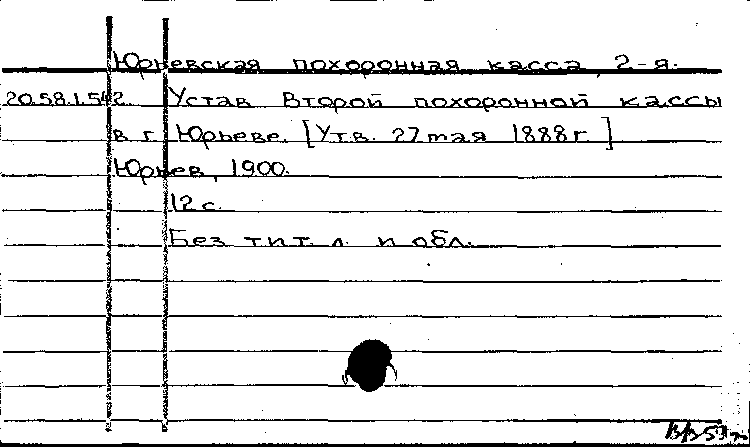 Юрьевская похоронная касса, 2-я.
20.58.1.542. Устав Второй похоронной кассы
в г. Юрьеве. [Утв. 27 мая 1888 г.]
Юрьев, 1900.
12 с.
Без тит. л. и обл.